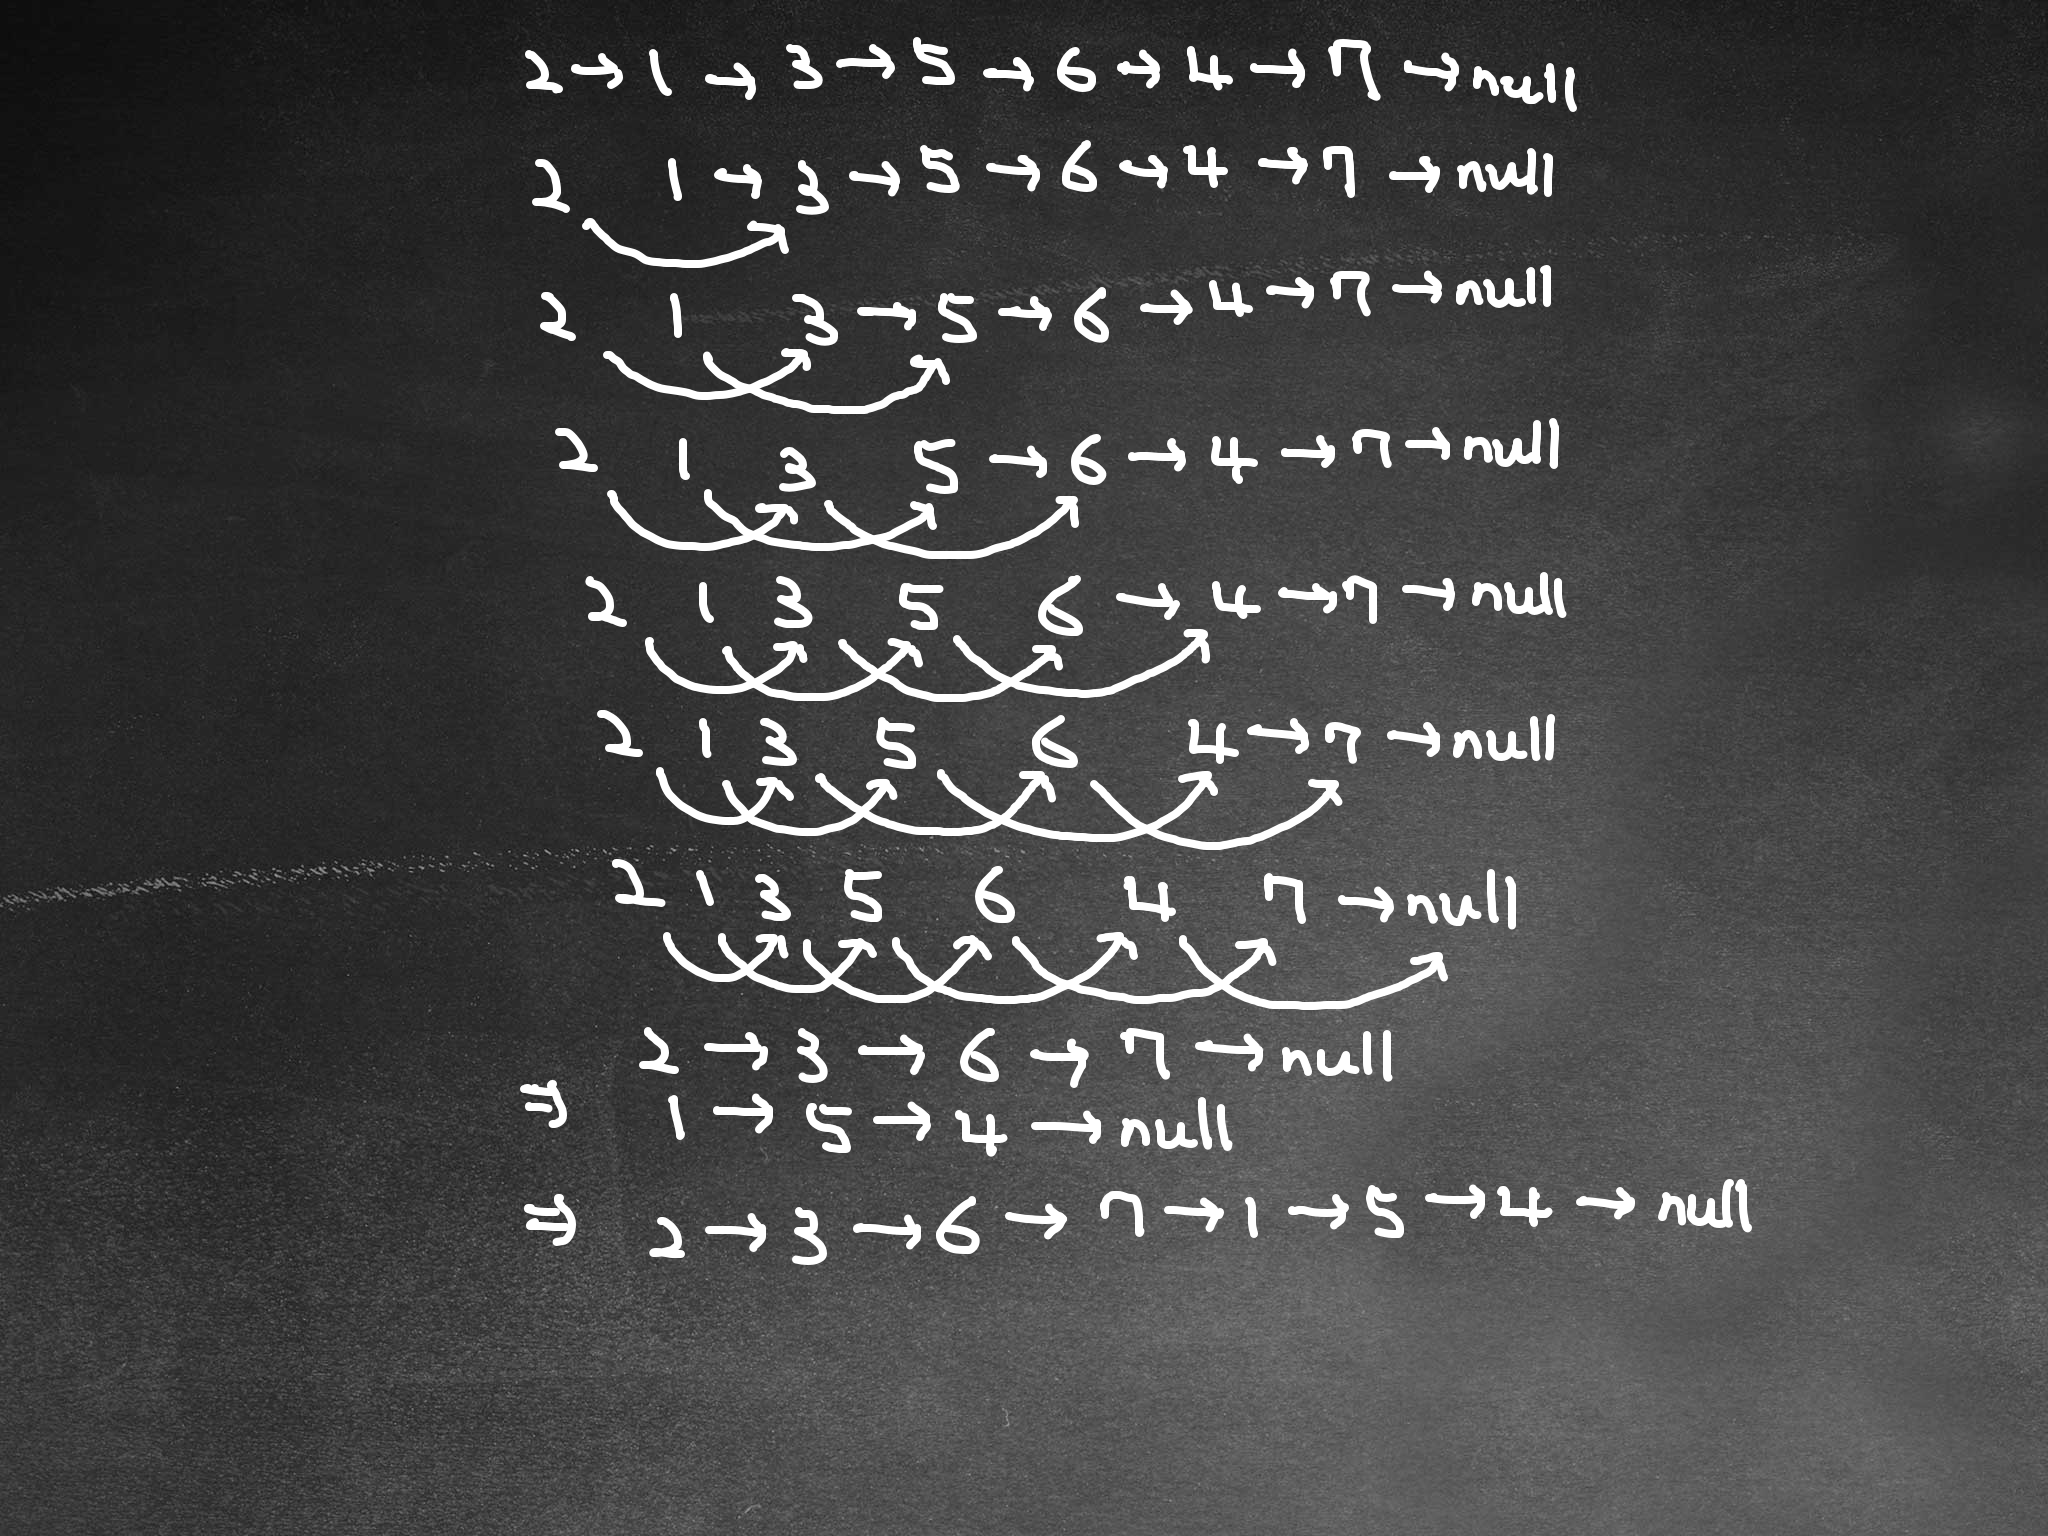 2 → 1 → 3 → 5 → 6 → 4 → 7 → null
2 1 → 3 → 5 → 6 → 4 → 7 → null
2 1 3 → 5 → 6 → 4 → 7 → null
2 1 3 5 → 6 → 4 → 7 → null
2 1 3 5 6 → 4 → 7 → null
2 1 3 5 6 4 → 7 → null
2 1 3 5 6 4 7 → null
2 → 3 → 6 → 7 → null
⇒ 1 → 5 → 4 → null
⇒ 2 → 3 → 6 → 7 → 1 → 5 → 4 → null